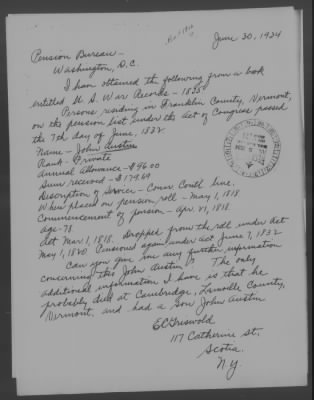 June 30, 1924
Pension Bureau -
Washington, D.C.
I have obtained the following from a book
entitled U.S. War Records - 1835
Persons residing in Franklin County, Vermont,
on the pension list under the Act of Congress passed
the 7th day of June, 1832
Name - John Austin
Rank - Private
Annual Allowance - $96.00
Sum received - $179.69
Description of Service - Conn. Contl. line.
When placed on pension roll - May 1, 1818
Commencement of pension - Apr. 21, 1818.
age - 78.
Act Mar. 1, 1818. Dropped from the roll under act
May 1, 1820 Pensioned again under act June 7, 1832
Can you give me any further information
concerning this John Austin? The only
additional information I have is that he
probably died at Cambridge, Lamoille County,
Vermont, and had a son John Austin
E C Griswold
117 Catherine St.
Scotia.
N.Y.